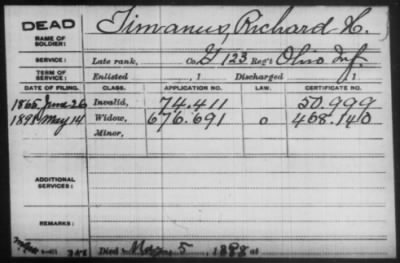 DEAD
NAME OF SOLDIER: Timanus, Richard H.
SERVICE: Late rank, Co. G 123 Reg't Ohio Inf.
TERM OF SERVICE: Enlisted , 1 Discharged , 1
DATE OF FILING. CLASS. APPLICATION NO. LAW. CERTIFICATE NO.
1865 June 26 Invalid, 74.411 50.999
May 14 Widow, 676.691 468.140
Minor,
ADDITIONAL SERVICES:
REMARKS:
Died 5, 1898 at